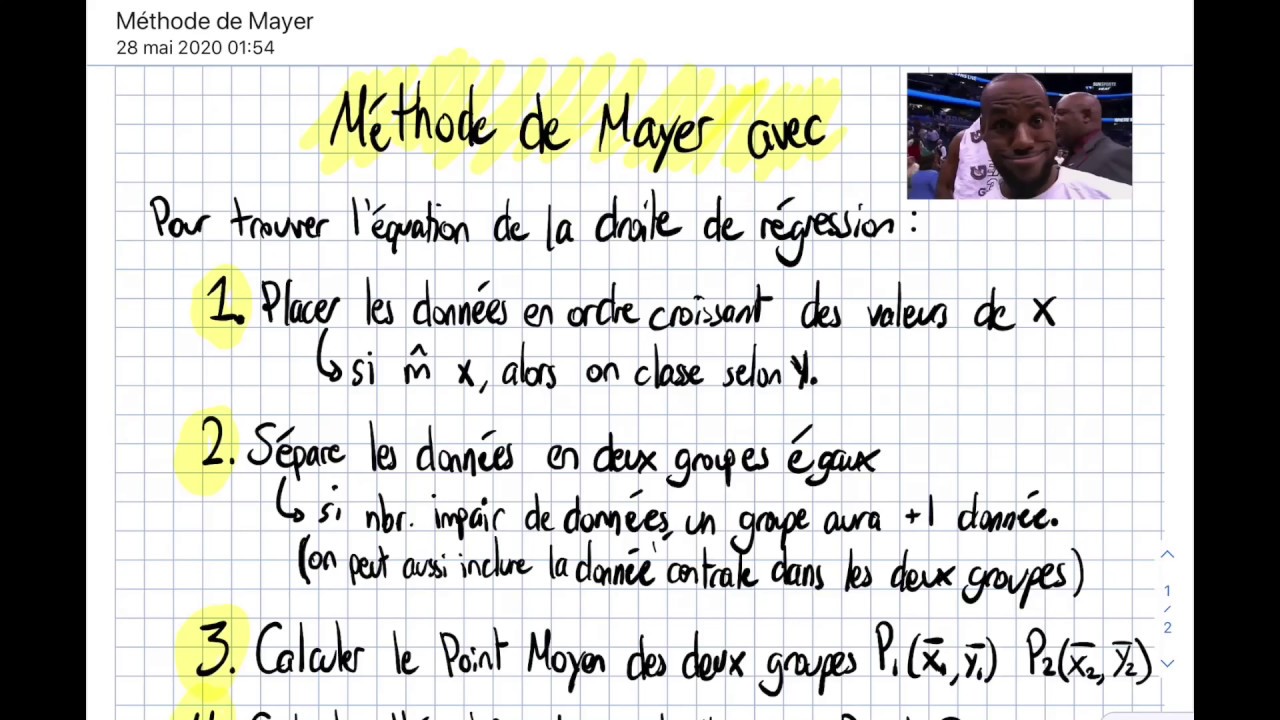 Méthode de Mayer
28 mai 2020 01:54
Méthode de Mayer avec
Pour trouver l'équation de la droite de régression :
1. Placer les données en ordre croissant des valeurs de x
↳ si m̂ x, alors on classe selon y.
2. Sépare les données en deux groupes égaux
↳ si nbr. impair de données, un groupe aura +1 donnée.
(on peut aussi inclure la donnée centrale dans les deux groupes)
1
/
2
3. Calculer le Point Moyen des deux groupes P₁(x̄₁, ȳ₁) P₂(x̄₂, ȳ₂)